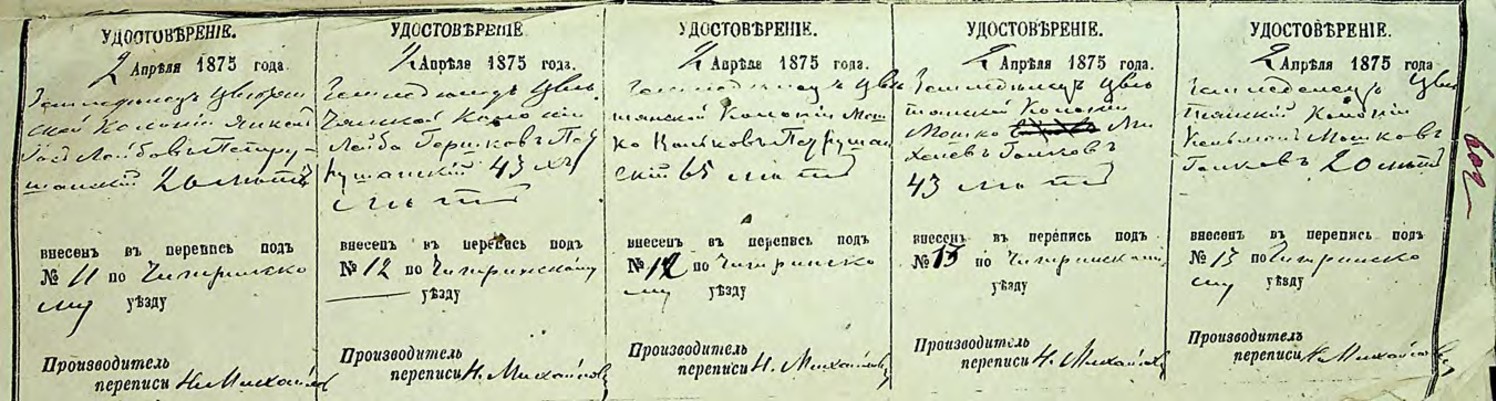 УДОСТОВѢРЕНІЕ.
2 Апрѣля 1875 года.
Земледѣлецъ
ской Колоніи
Лейбовъ Петру-
шанскій 26 лѣтъ
внесенъ въ перепись подъ
№ 11 по Чигиринско
му уѣзду
Производитель
переписи Н. Михайлов
УДОСТОВѢРЕНІЕ
2 Апрѣля 1875 года.
Земледѣлецъ Цвѣ
Колоніи
Лейба Гершковъ Пет
рушанскій 43 хъ
лѣтъ
внесенъ въ перепись подъ
№ 12 по Чигиринскому
уѣзду
Производитель
переписи Н. Михайлов
УДОСТОВѢРЕНІЕ.
2 Апрѣля 1875 года.
Земледѣлецъ Цвѣ
тянской Колоніи Мош
ко Петрушан
скій 65 лѣтъ
внесенъ въ перепись подъ
№ 12 по Чигиринско
му уѣзду
Производитель
переписи Н. Михайлов
УДОСТОВѢРЕНІЕ.
2 Апрѣля 1875 года.
Земледѣлецъ Цвѣ
тянской Колоніи
Мошко Ми
хелевъ Галковъ
43 лѣтъ
внесенъ въ перепись подъ
№ 13 по Чигиринскому
уѣзду
Производитель
переписи Н. Михайлов
УДОСТОВѢРЕНІЕ.
2 Апрѣля 1875 года
Земледѣлецъ Цвѣ
тянской Колоніи
Мошковъ
Галковъ 20 лѣтъ
внесенъ въ перепись подъ
№ 13 по Чигиринско
му уѣзду
Производитель
переписи Н. Михайлов